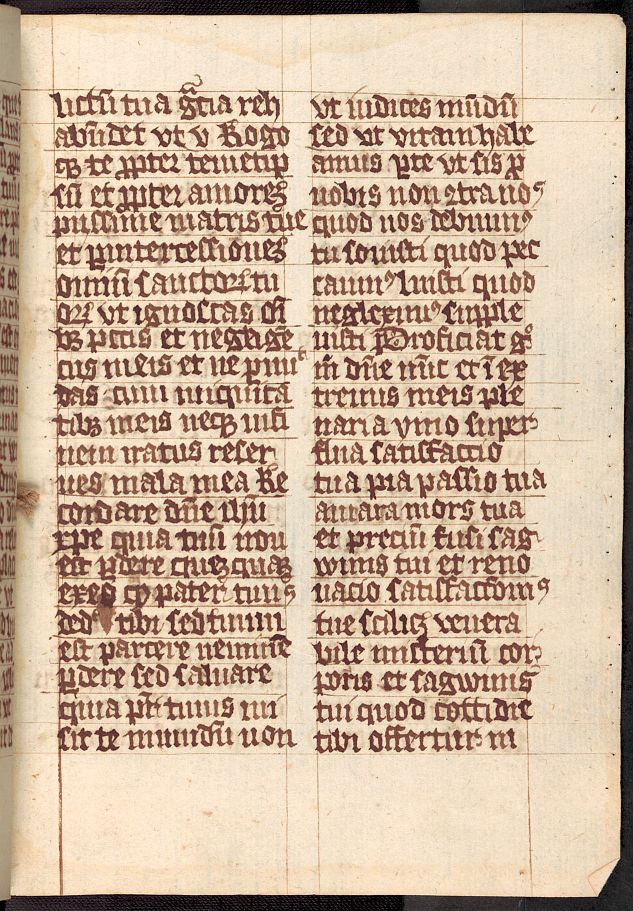 lictū tua gr̄cia reh
abūdet vt v Rogo
qꝫ te ꝓpter temetip
sū et ꝓpter amorēꝫ
pijssime matris tue
et ꝑ intercessioneꝫ
omniū sanctorꝝ tu
orꝝ vt ignoscas oī
bꝫ pctīs et neglige
cijs meis et ne ꝑmit
das cum iniquita
tibꝫ meis neqꝫ infi
nem iratus reser
ues mala mea Re
cordare dn̄e ihū
xpe quia tuū non
est ꝑdere
pater tuus
ded tibi sed tuum
est parcere neminē
ꝑdere sed saluare
quia pr̄ tuus mi
sit te mundū non
vt iudices mūdū
sed vt vitam habe
amus ꝑ te vt sis ꝓ
nobis non ꝯtra nos
quod nos debuimꝰ
tu soluisti quod pec
cauimꝰ luisti quod
negleximꝰ supple
uisti Proficiat gͦ
m̄ dn̄e nūc et ī ex
tremis meis ple
naria ymo super
flua satisfaccio
tua pia passio tua
amara mors tua
et preciū fusi sag
winis tui et reno
uacio satisfaccionis
tue scilicꝫ venera
bile misteriū cor
poris et sagwinis
tui quod cottidie
tibi offertur in